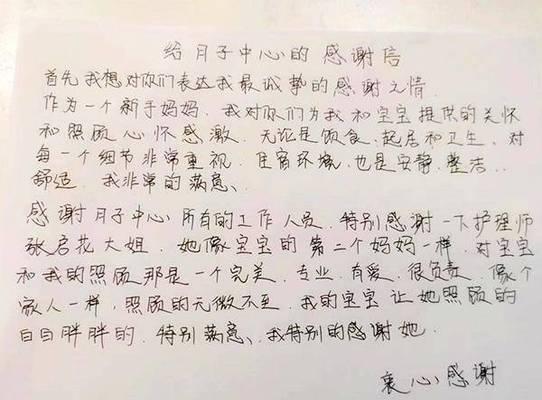 给月子中心的感谢信
首先我想对你们表达我最诚挚的感谢之情.
作为一个新手妈妈.我对你们为我和宝宝提供的关怀
和照顾心怀感激.无论是饮食.起居和卫生.对
每一个细节非常重视.住宿环境.也是安静.整洁..
舒适.我非常的满意、
感谢月子中心所有的工作人员.特别感谢一下护理师
张启花大姐.她像宝宝的第二个妈妈一样.对宝宝
和我的照顾那是一个完美.专业.有爱.很负责.像个
家人一样,照顾的无微不至.我的宝宝让她照顾的
白白胖胖的.特别满意、我特别的感谢她.
衷心感谢